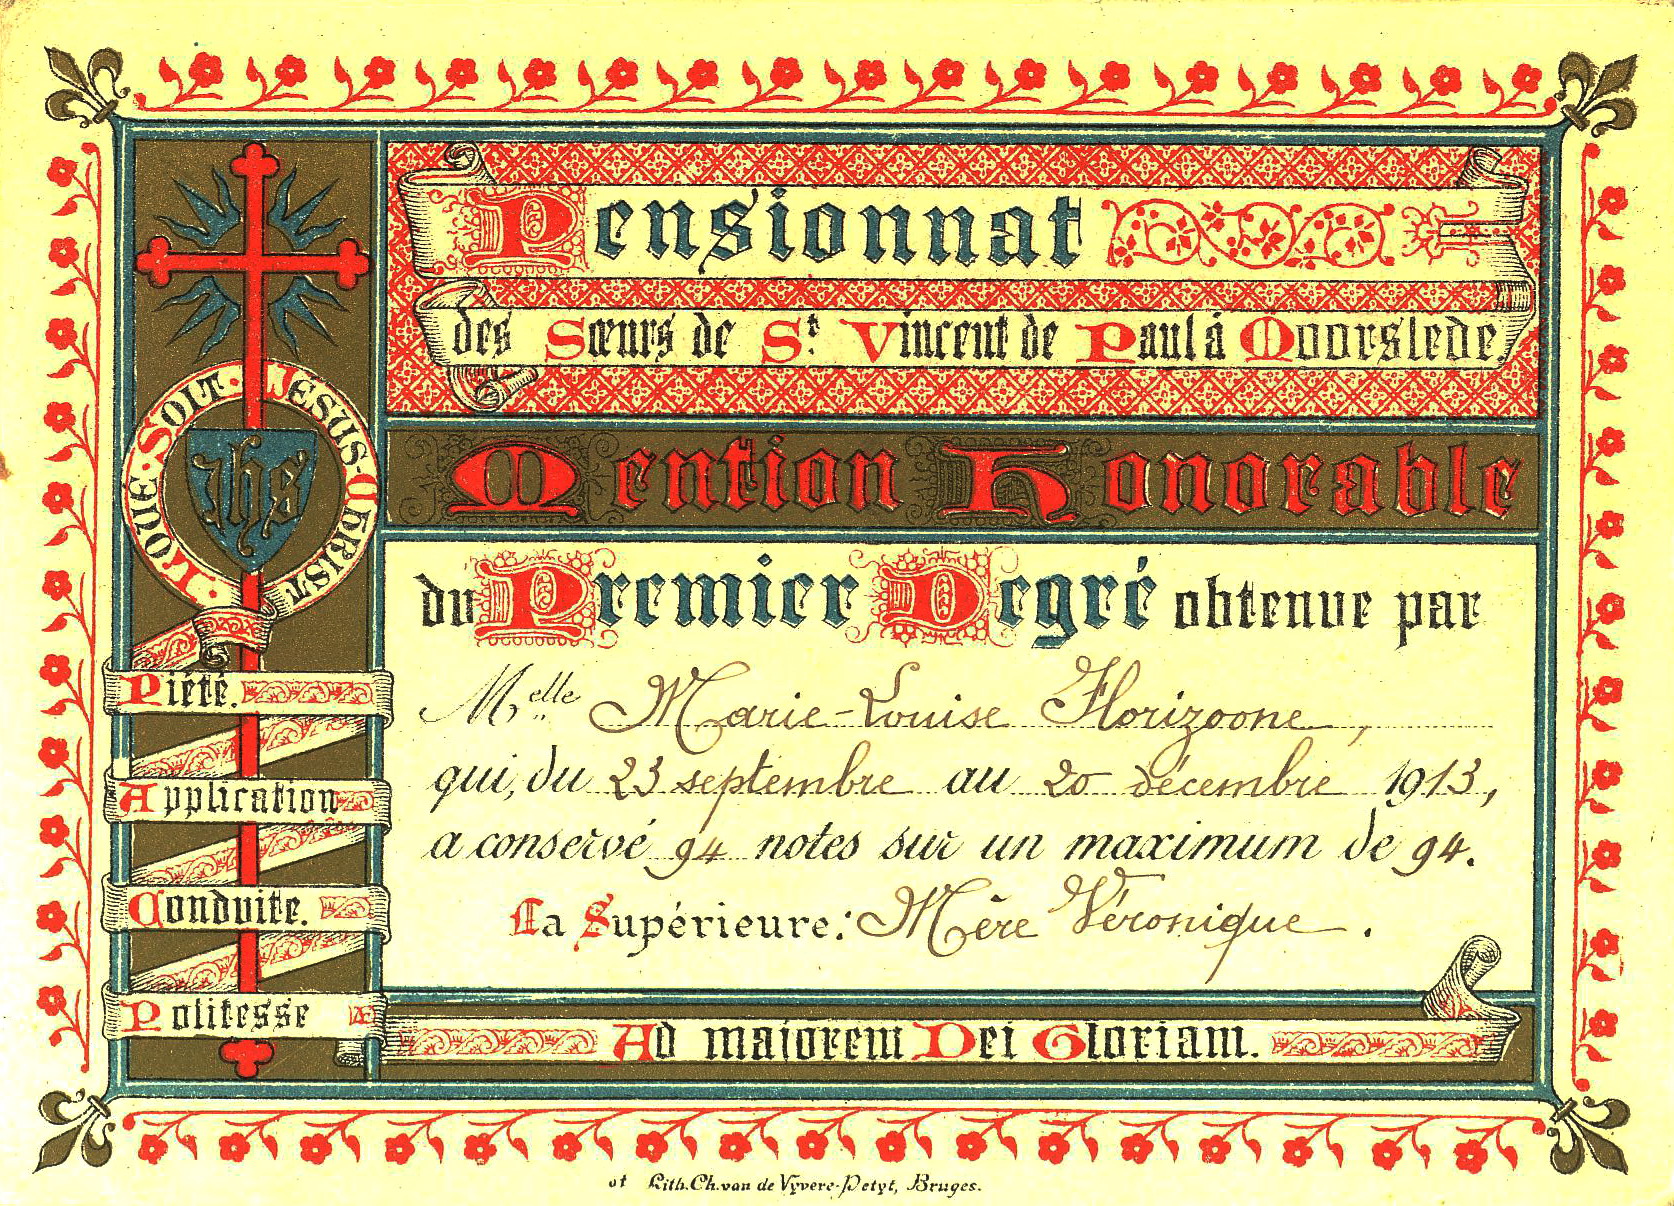 Pensionnat
des Sœurs de St Vincent de Paul à Moorslede.
Mention Honorable
du Premier Degré obtenue par
Melle Marie-Louise Florizoone,
qui, du 23 septembre au 20 décembre 1913,
a conservé 94 notes sur un maximum de 94.
La Supérieure: Mère Véronique.
LOUÉ·SOIT·JESUS-CHRIST
ihs
Piété.
Application
Conduite.
Politesse
Ad majorem Dei Gloriam.
Lith. Ch. van de Vyvere-Petyt, Bruges.